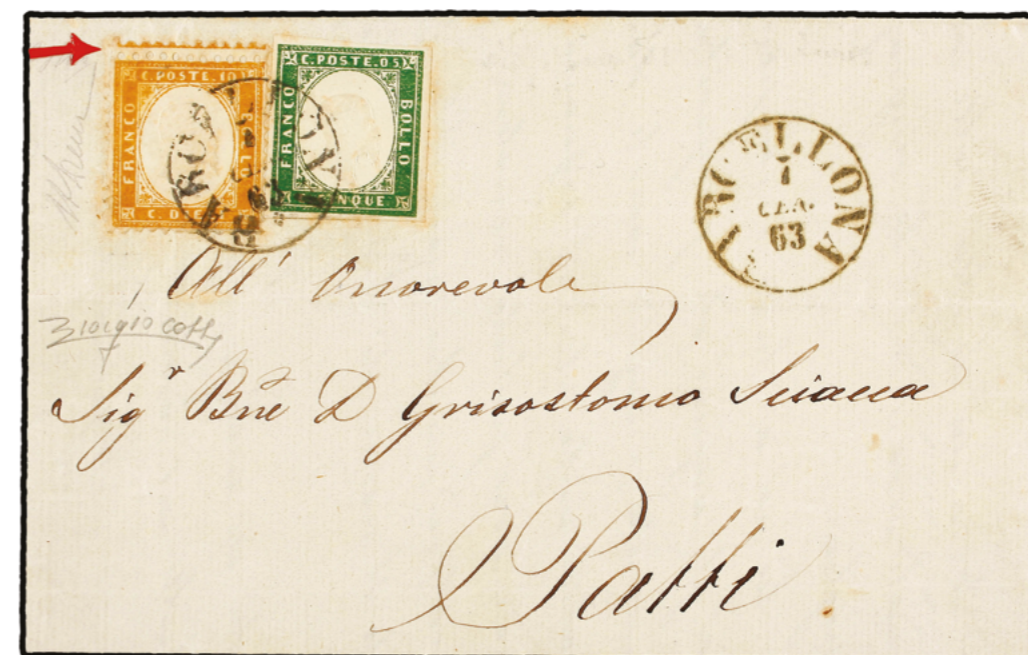 C. POSTE. 10
FRANCO
C. DIECI
C. POSTE. 05
FRANCO
BOLLO
CINQUE
BARCELLONA
7
GEN.
63
All' Onorevole
Sigr Bne D Grisostomo Sciacca
Patti